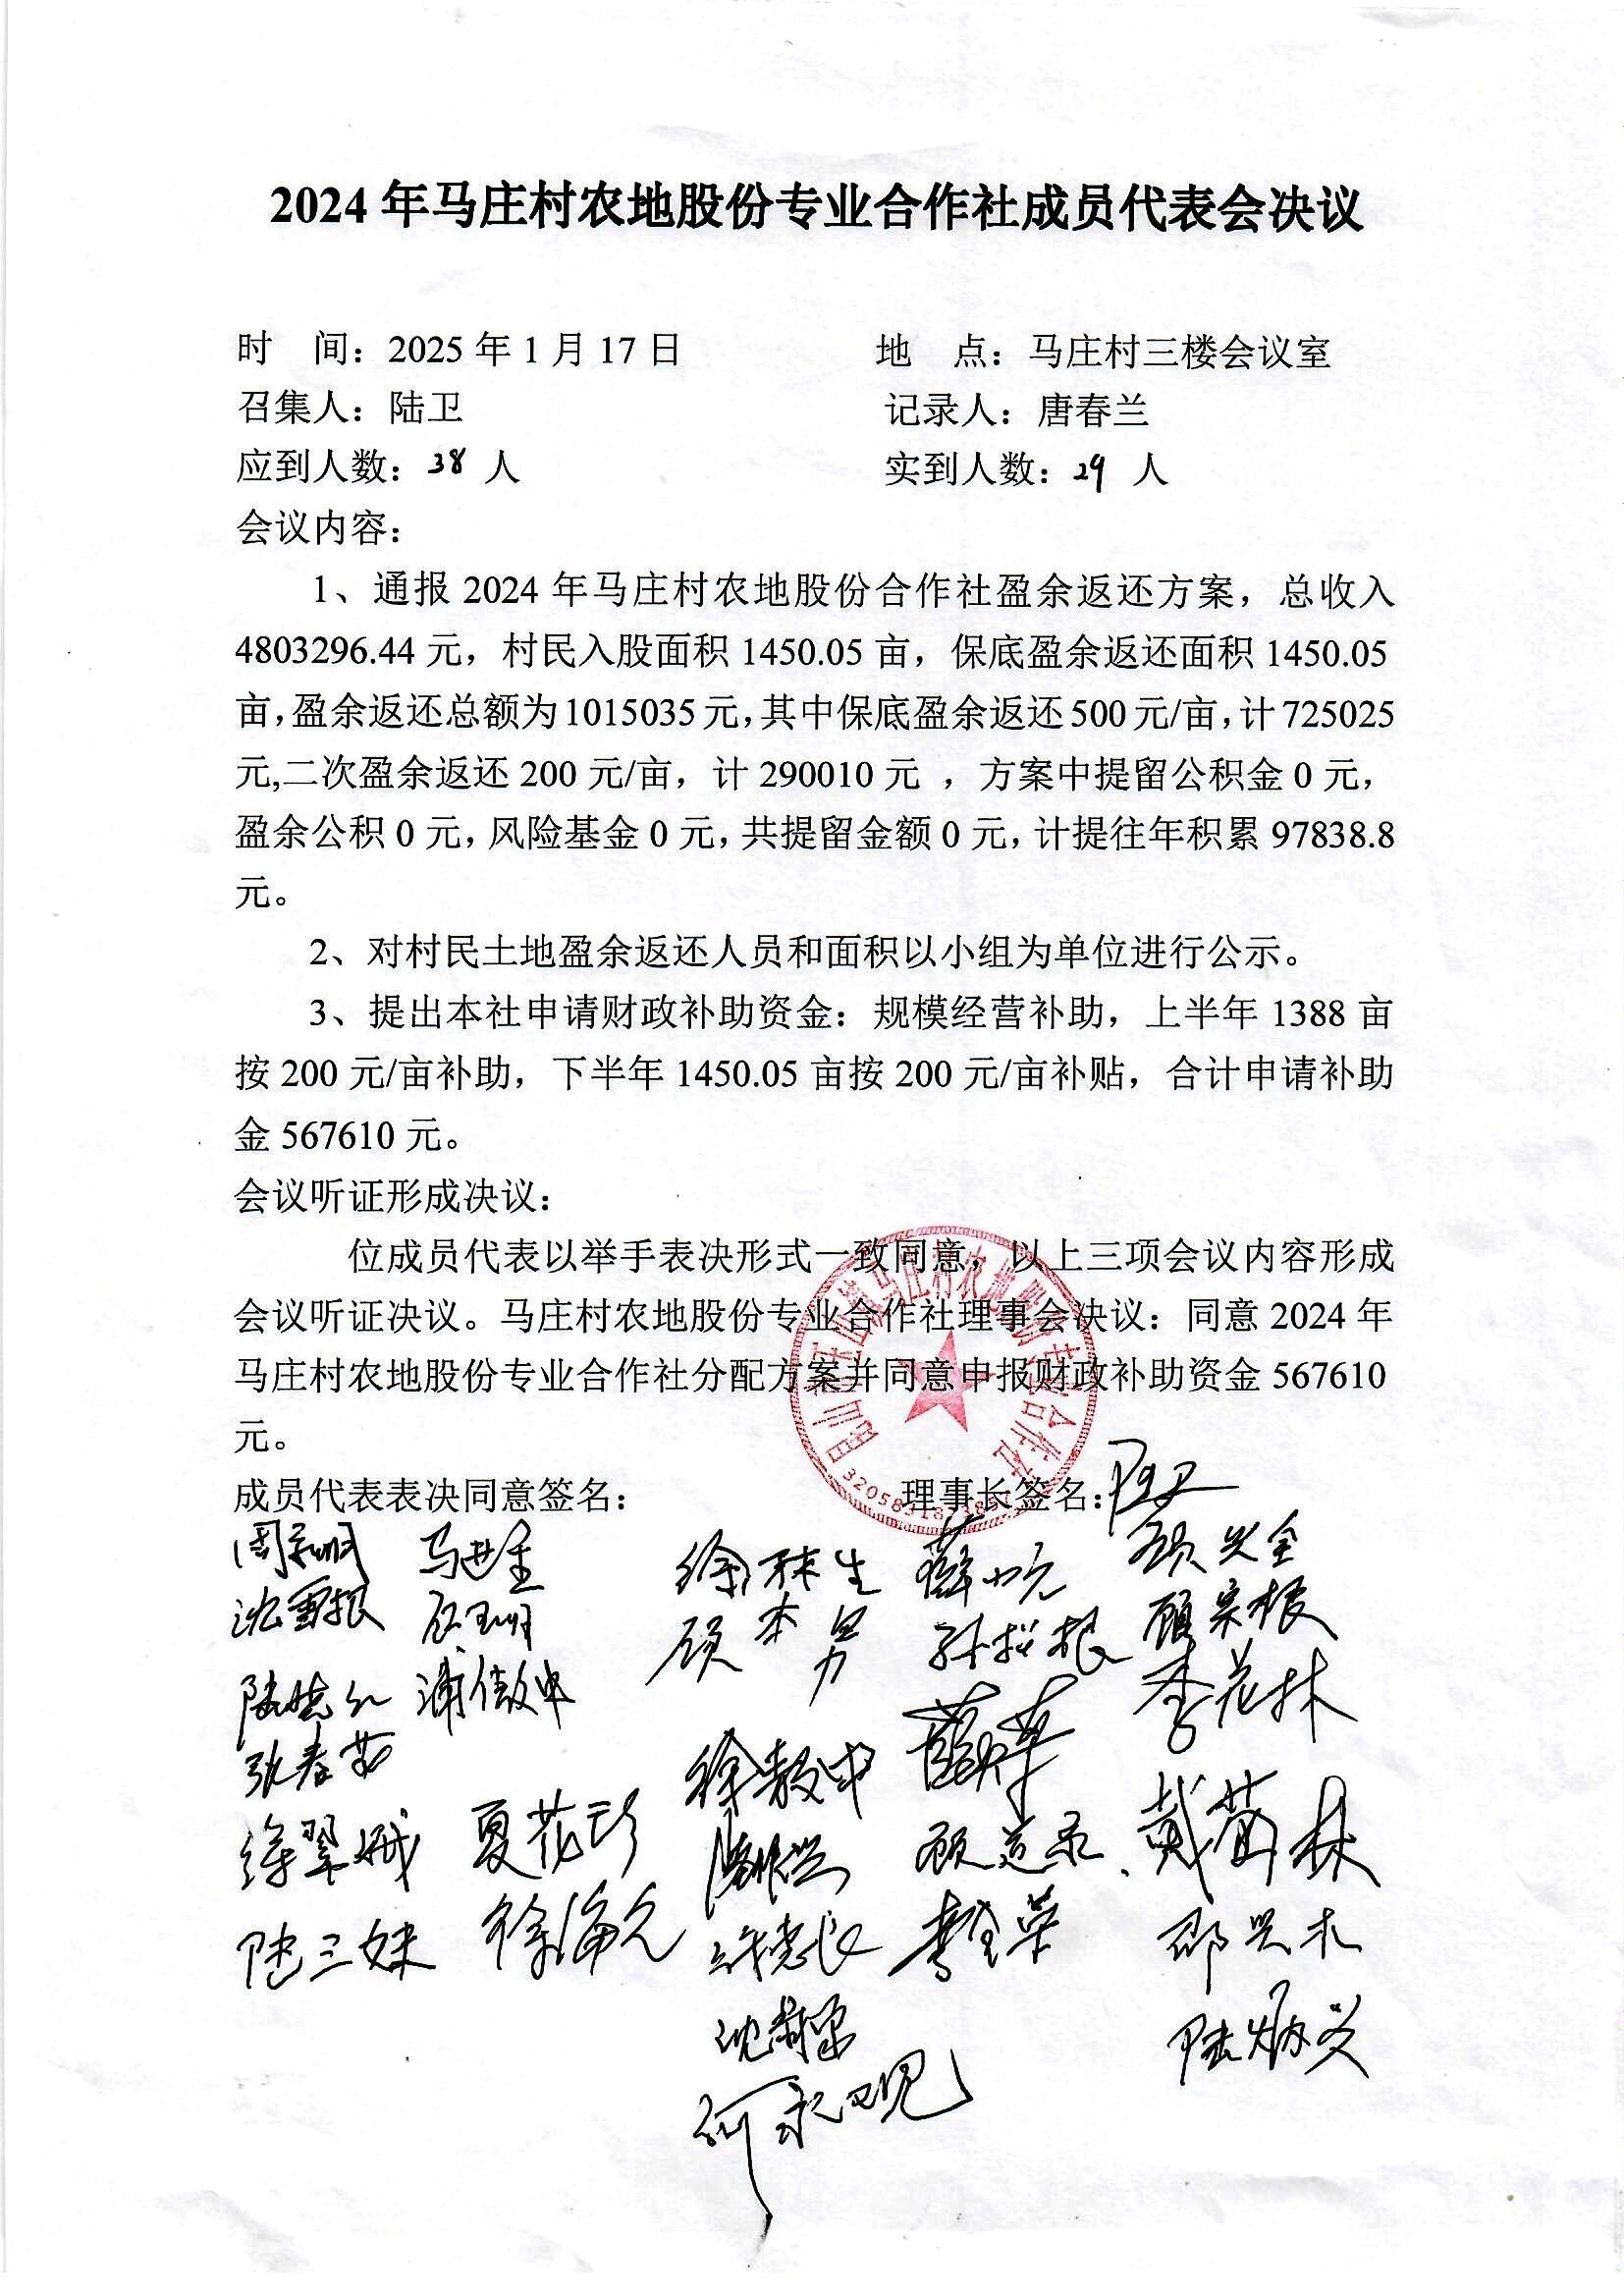 2024年马庄村农地股份专业合作社成员代表会决议
时 间：2025年1月17日 地 点：马庄村三楼会议室
召集人：陆卫 记录人：唐春兰
应到人数：38 人 实到人数：29 人
会议内容：
1、通报2024年马庄村农地股份合作社盈余返还方案，总收入
4803296.44元，村民入股面积1450.05亩，保底盈余返还面积1450.05
亩，盈余返还总额为1015035元，其中保底盈余返还500元/亩，计725025
元,二次盈余返还200元/亩，计290010元 ，方案中提留公积金0元，
盈余公积0元，风险基金0元，共提留金额0元，计提往年积累97838.8
元。
2、对村民土地盈余返还人员和面积以小组为单位进行公示。
3、提出本社申请财政补助资金：规模经营补助，上半年1388亩
按200元/亩补助，下半年1450.05亩按200元/亩补贴，合计申请补助
金567610元。
会议听证形成决议：
位成员代表以举手表决形式一致同意，以上三项会议内容形成
会议听证决议。马庄村农地股份专业合作社理事会决议：同意2024年
马庄村农地股份专业合作社分配方案并同意申报财政补助资金567610
元。
成员代表表决同意签名： 理事长签名：陆卫
马进金 徐林生 顾兴全
沈雪根 顾本男 孙拾根 顾宗根
李花林
张春芳 徐教中 薛萍
徐翠娥 夏花珍 顾道承 戴菊林
陆三妹 徐海元 李全荣 邵兴木
陆炳兴